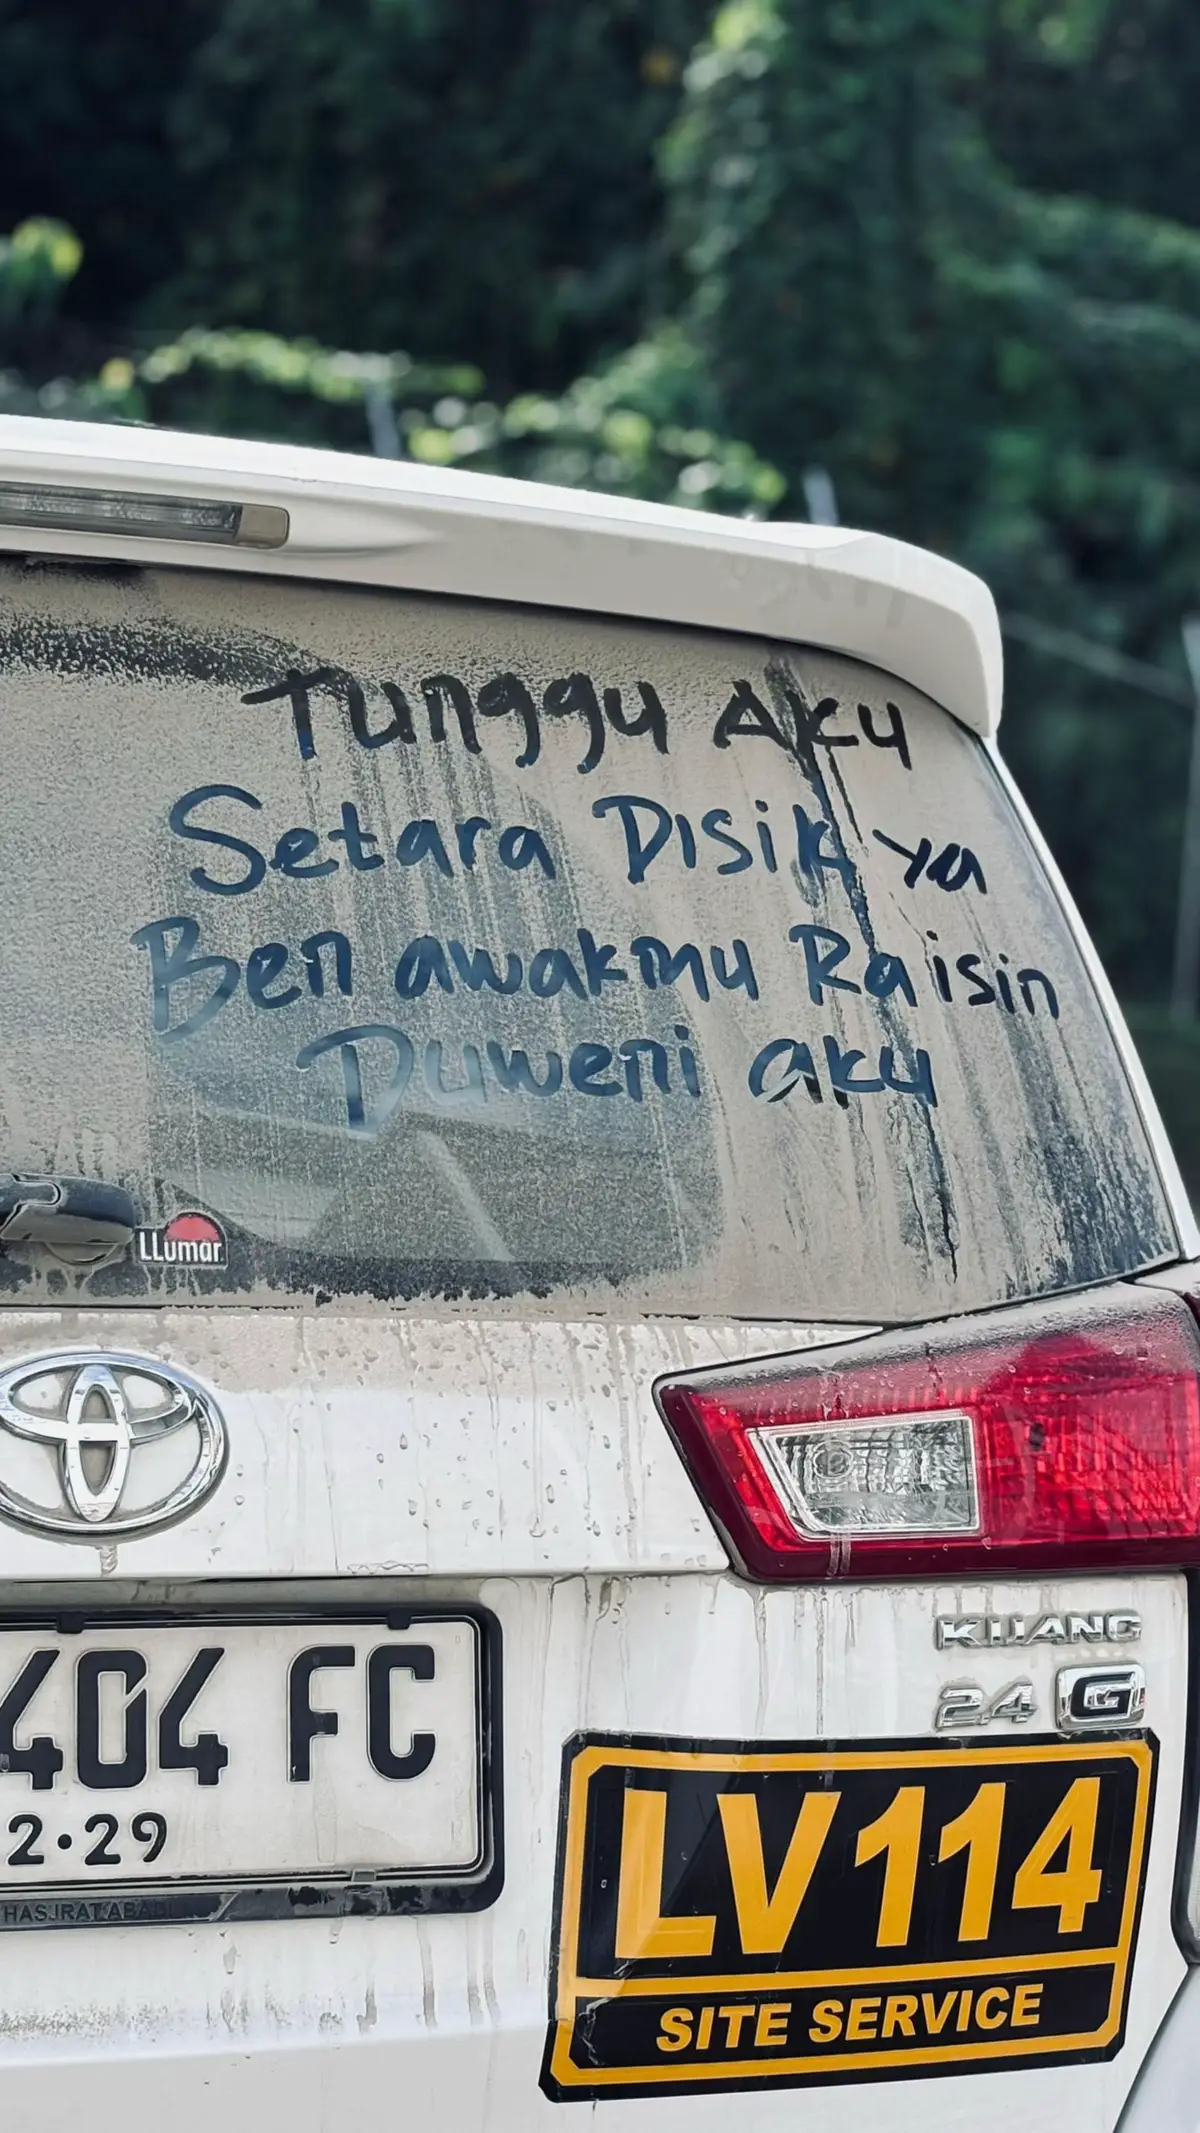 Tunggu Aku
Setara Disik ya
Ben awakmu Raisin
Duweni aku
LLumar
404 FC
2·29
HASJRAT ABADI
KIJANG
2.4 G
LV114
SITE SERVICE